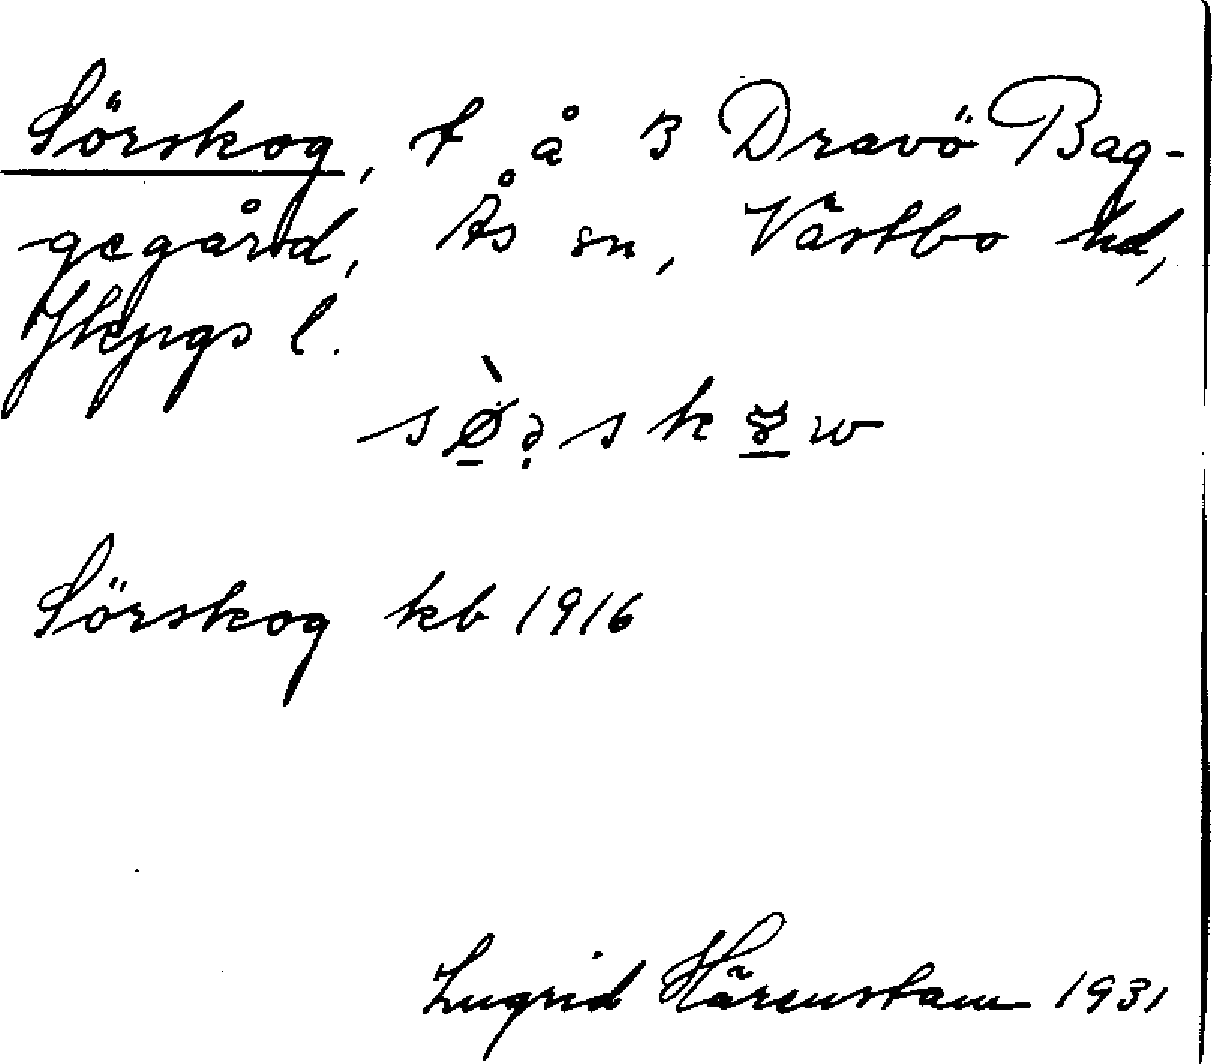 Sörskog, t å 3 Dravö Bag-
gegård, Ås sn, Västbo hd,
Jkpgs l.
Sörskog kb 1916
Ingrid Härenstam 1931